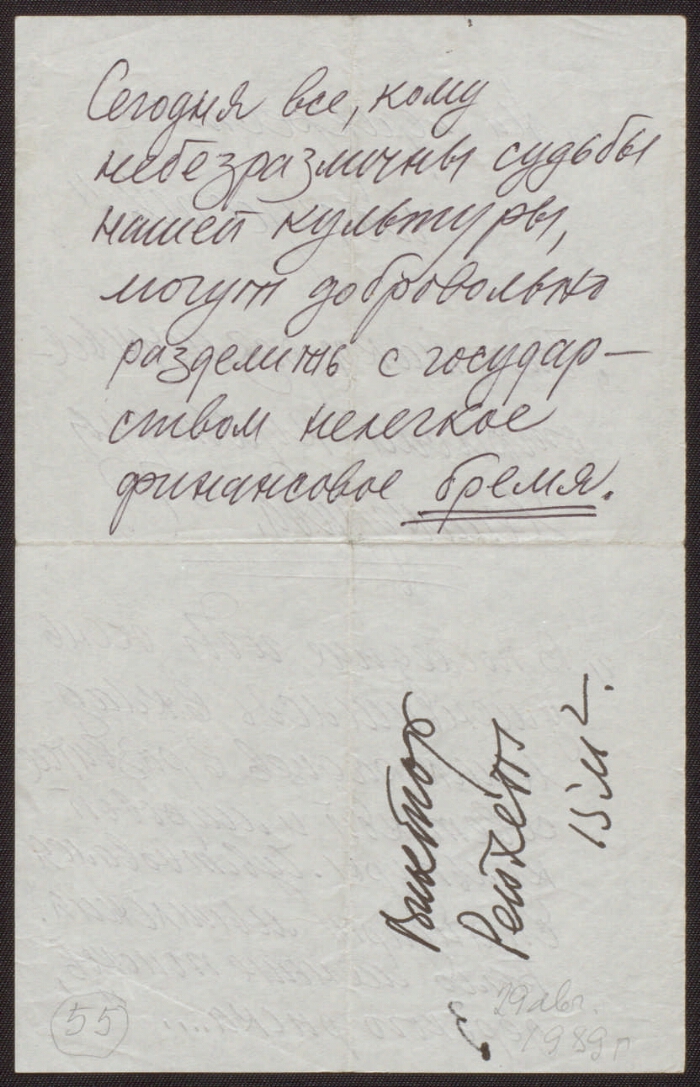 Сегодня все, кому
небезразличны судьбы
нашей культуры,
могут добровольно
разделить с государ—
ством нелегкое
финансовое бремя.
Виктор
15 м²
29 авг.
1989 г
55